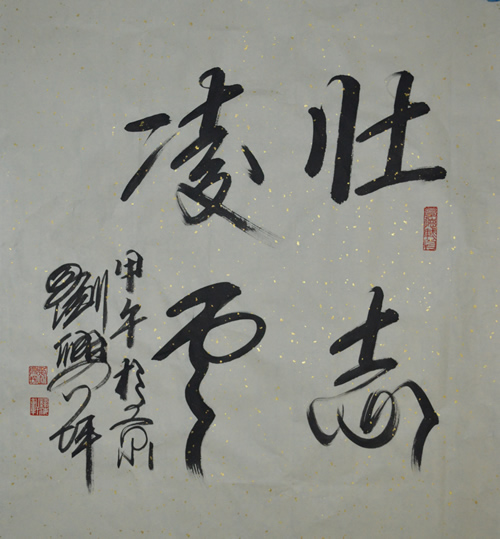 壮志
凌雲
甲午於京
劉興